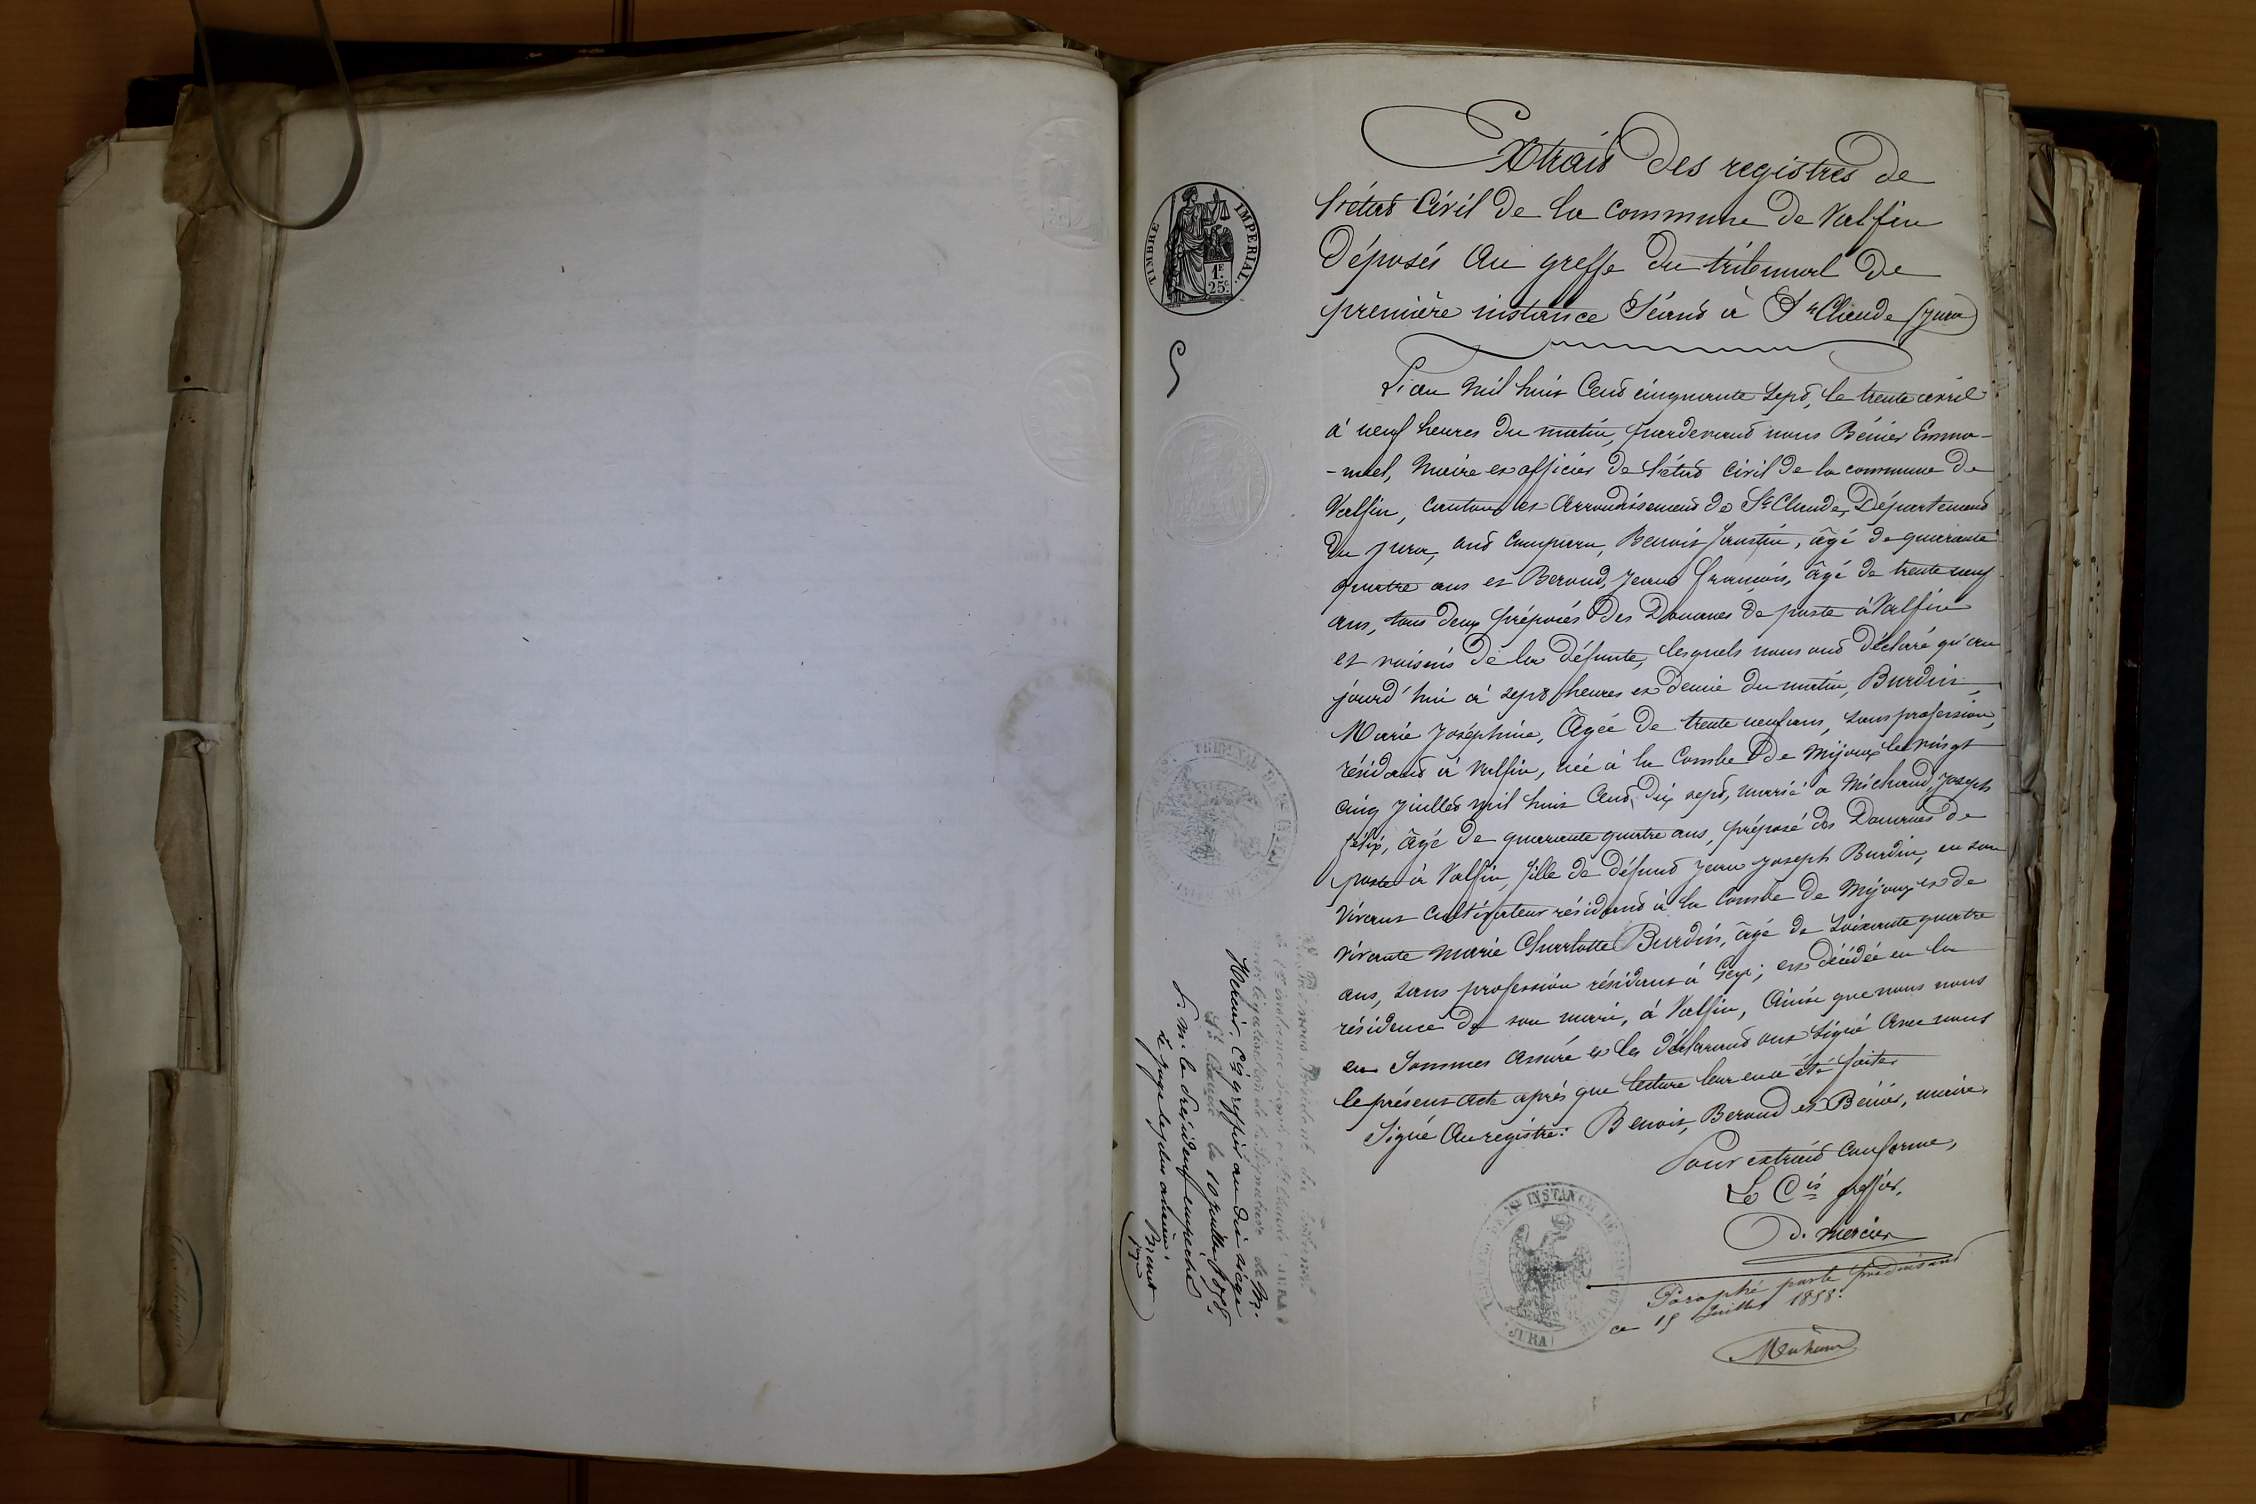 Extrait des registres de
l'état Civil de la commune de Valfin
Déposés au greffe du tribunal de
première instance séant à St Claude (Jura)
TIMBRE IMPERIAL
1F
25c
5
L'an mil huit Cent cinquante sept, le trente avril
à neuf heures du matin, pardevant nous Bénier Emma-
-nuel, Maire et officier de l'état Civil de la commune de
Valfin, canton et Arrondissement de St Claude, Département
du Jura, ont comparu, Benoit Faustin, âgé de quarante
quatre ans et Beroud, Jean François, âgé de trente neuf
ans, tous deux préposés des Douanes de poste à Valfin
et voisins de la défunte, lesquels nous ont déclaré qu'au
jourd'hui à sept heures et demie du matin, Burdin,
Marie Joséphine, Agée de trente neuf ans, sans profession,
résidant à Valfin, née à la Combe de Mijoux le vingt
cinq Juillet mil huit Cent dix sept, marié à Michaud, Joseph
félix, âgé de quarante quatre ans, préposé des Douanes de
poste à Valfin, fille de défunt Jean Joseph Burdin, en son
vivant cultivateur résidant à la Combe de Mijoux et de
vivante Marie Charlotte Burdin, âgé de soixante quatre
ans, sans profession résidant à Gex; est décédée en la
résidence de son mari, à Valfin, Ainsi que nous nous
en sommes assuré et les déclarant ont signé avec nous
le présent acte après que lecture leur en a été faite.
Signé Au registre: Benoit, Beroud et Bénier, maire.
Pour extrait conforme,
Le Cis greffier,
D. Mercier
Paraphé par le
ce 15 Juillet 1858.
TRIBUNAL DE 1RE INSTANCE DE ST CLAUDE
(JURA)
Nous Président du Tribunal
de 1re instance séant à St Claude (JURA)
légalisation de la signature de Mr.
Mercier, Cis greffier au dit siège
St Claude le 10 juillet 1858.
P. Mr le Président empêché
Le juge le plus ancien:
juge